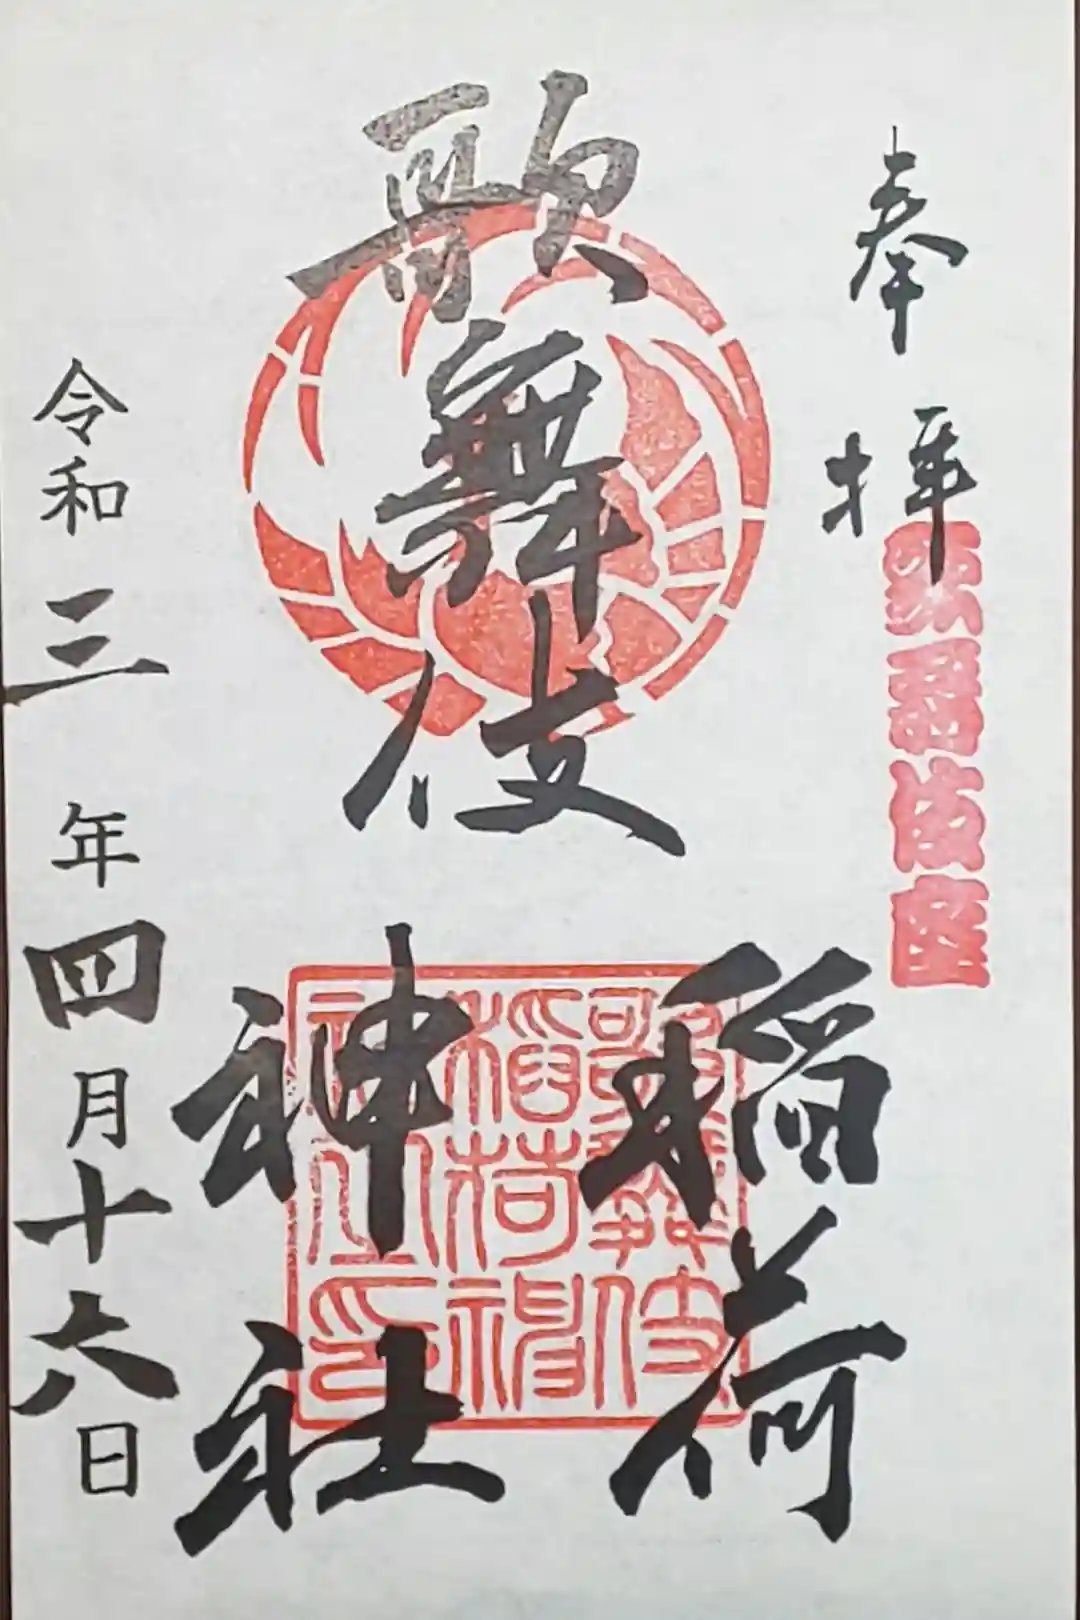 奉拝
歌舞伎座
歌舞伎
稲荷
神社
歌舞伎
稲荷神
社之印
令和三年四月十六日